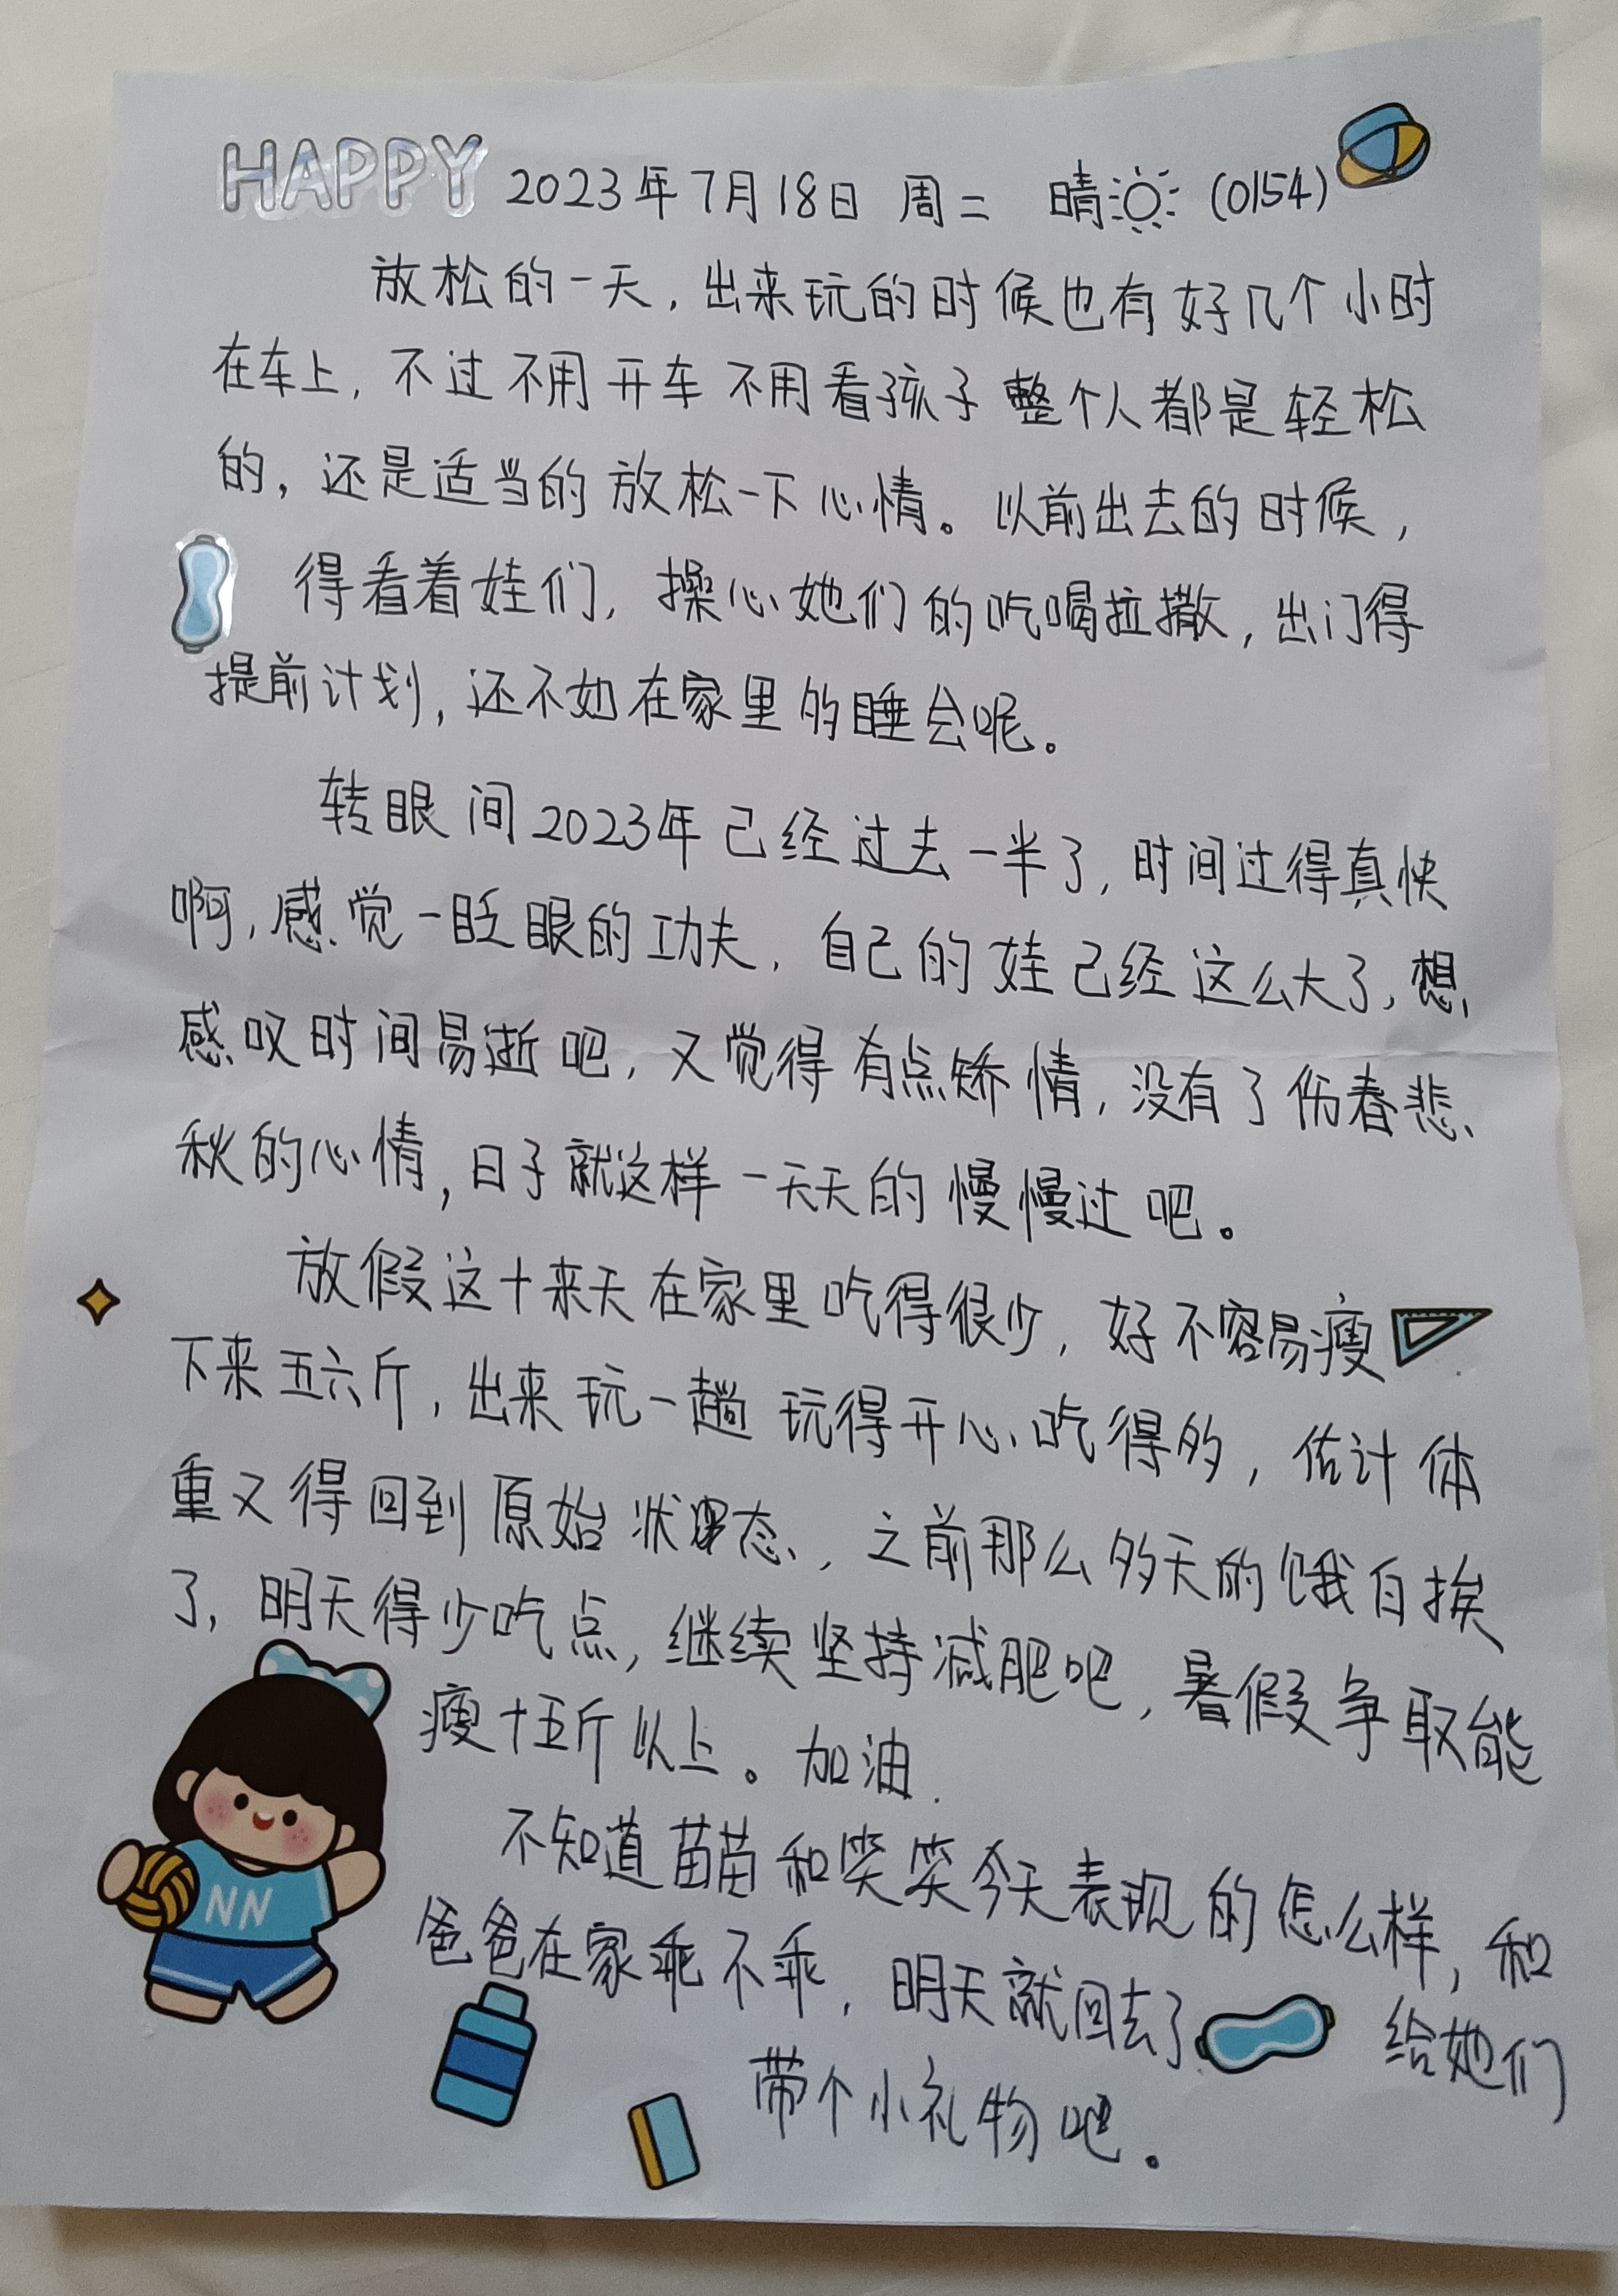 HAPPY 2023年7月18日 周二 晴 (0154)
放松的一天，出来玩的时候也有好几个小时
在车上，不过不用开车不用看孩子整个人都是轻松
的，还是适当的放松一下心情。以前出去的时候，
得看着娃们，操心她们的吃喝拉撒，出门得
提前计划，还不如在家里多睡会呢。
转眼间2023年已经过去一半了，时间过得真快
啊，感觉一眨眼的功夫，自己的娃已经这么大了，想
感叹时间易逝吧，又觉得有点矫情，没有了伤春悲
秋的心情，日子就这样一天天的慢慢过吧。
放假这十来天在家里吃得很少，好不容易瘦
下来五六斤，出来玩一趟玩得开心吃得多，估计体
重又得回到原始状态，之前那么多天的饿白挨
了，明天得少吃点，继续坚持减肥吧，暑假争取能
瘦十五斤以上。加油.
不知道苗苗和笑笑今天表现的怎么样，和
爸爸在家乖不乖，明天就回去了 给她们
带个小礼物吧。
NN